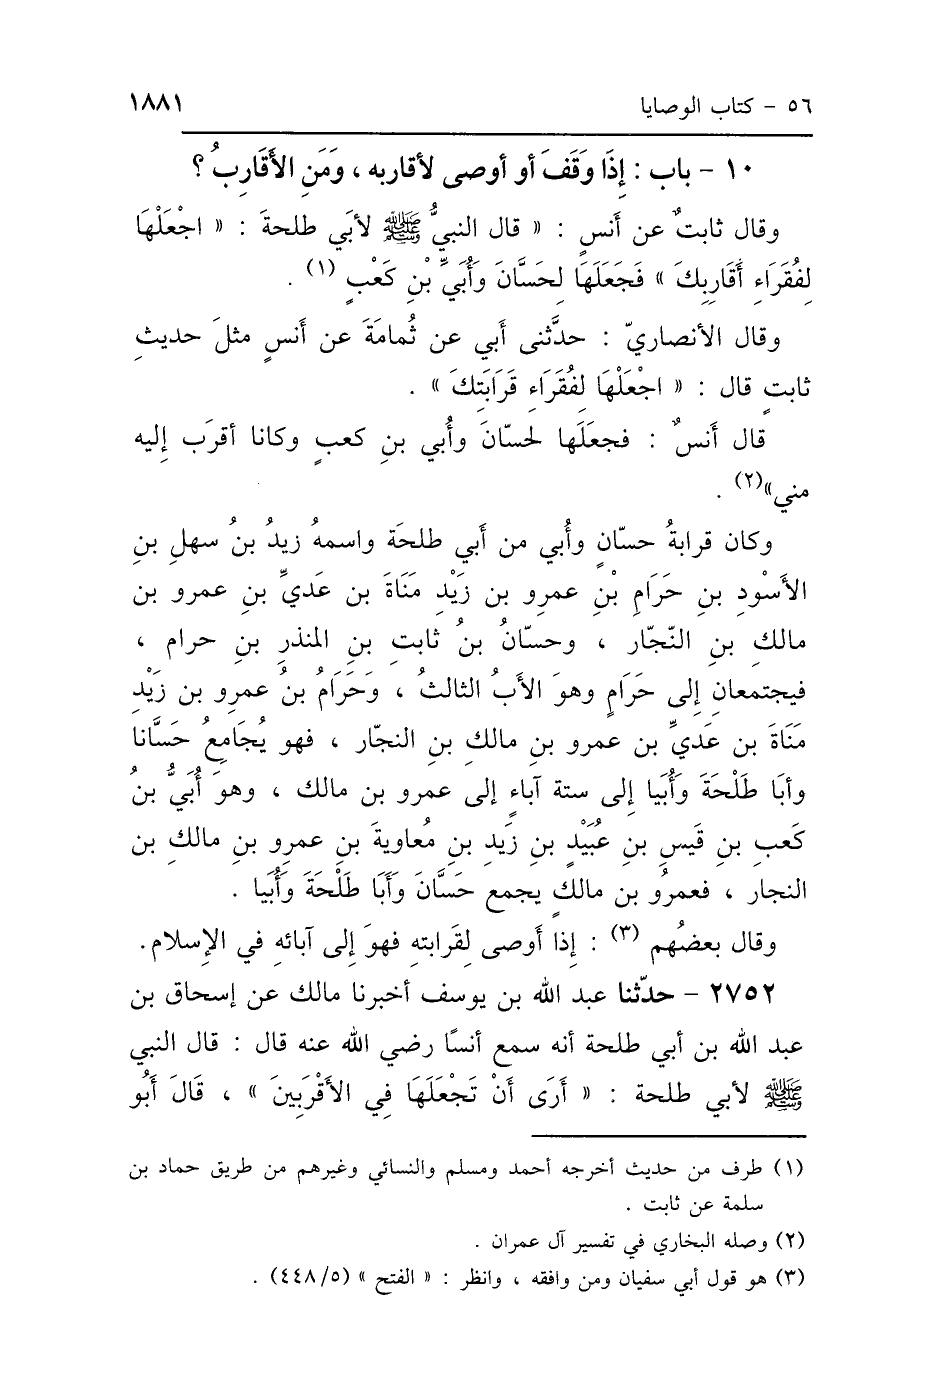 ٥٦ - كتاب الوصايا ١٨٨١
١٠ - باب : إِذَا وَقَفَ أو أوصى لأقاربه ، ومَنِ الأَقَارِبُ ؟
وقال ثابتٌ عن أَنسٍ : « قال النبيُّ ﷺ لأَبي طلحةَ : « اجْعَلْهَا
لفُقَرَاءِ أَقَارِبِكَ » فَجَعَلَهَا لحَسَّانَ وَأُبَيِّ بْنِ كَعْبٍ (١) .
وقال الأنصاريّ : حدَّثنى أَبي عن ثُمامَةَ عن أَنسٍ مثلَ حديثِ
ثابتٍ قال : « اجْعَلْهَا لفُقَرَاءِ قَرَابَتِكَ » .
قال أَنسٌ : فجعَلَها لحسّانَ وأُبي بنِ كعبٍ وكانا أقرَب إليه
مني»(٢) .
وكان قرابةُ حسّانٍ وأُبي من أَبي طلحَة واسمهُ زيدُ بنُ سهلِ بنِ
الأَسْودِ بنِ حَرَامِ بْنِ عمرِو بن زَيْدِ مَنَاةَ بن عَديِّ بنِ عمرو بن
مالكِ بنِ النّجّار ، وحسّانُ بنُ ثابتِ بنِ المنذرِ بنِ حرام ،
فيجتمعانِ إلى حَرَامٍ وهوَ الأَبُ الثالثُ ، وَحَرَامُ بنُ عمرِو بن زَيْدِ
مَنَاةَ بن عَديِّ بن عمرو بنِ مالكِ بنِ النجّار ، فهو يُجَامِعُ حَسَّانا
وأبَا طَلْحَةَ وَأُبَيا إلى ستة آباءٍ إلى عمرو بن مالك ، وهوَ أُبَيُّ بنُ
كَعبِ بن قَيسِ بنِ عُبَيْدِ بنِ زَيدِ بنِ مُعاويةَ بنِ عمرِو بنِ مالكِ بن
النجار ، فعمرُو بن مالكٍ يجمع حَسَّانَ وَأَبَا طَلْحَةَ وَأُبَيا .
وقال بعضُهم (٣) : إِذَا أَوصى لقَرابتِهِ فهوَ إلى آبائه في الإِسلام.
٢٧٥٢ - حدّثنا عبد الله بن يوسف أخبرنا مالك عن إسحاق بن
عبد الله بن أبي طلحة أنه سمع أنسًا رضي الله عنه قال : قال النبي
ﷺ لأبي طلحة : « أَرَى أَنْ تَجْعَلَهَا فِي الأَقْرَبِينَ » ، قَالَ أَبُو
(١) طرف من حديث أخرجه أحمد ومسلم والنسائي وغيرهم من طريق حماد بن
سلمة عن ثابت .
(٢) وصله البخاري في تفسير آل عمران .
(٣) هو قول أبي سفيان ومن وافقه ، وانظر : « الفتح » (٤٤٨/٥) .